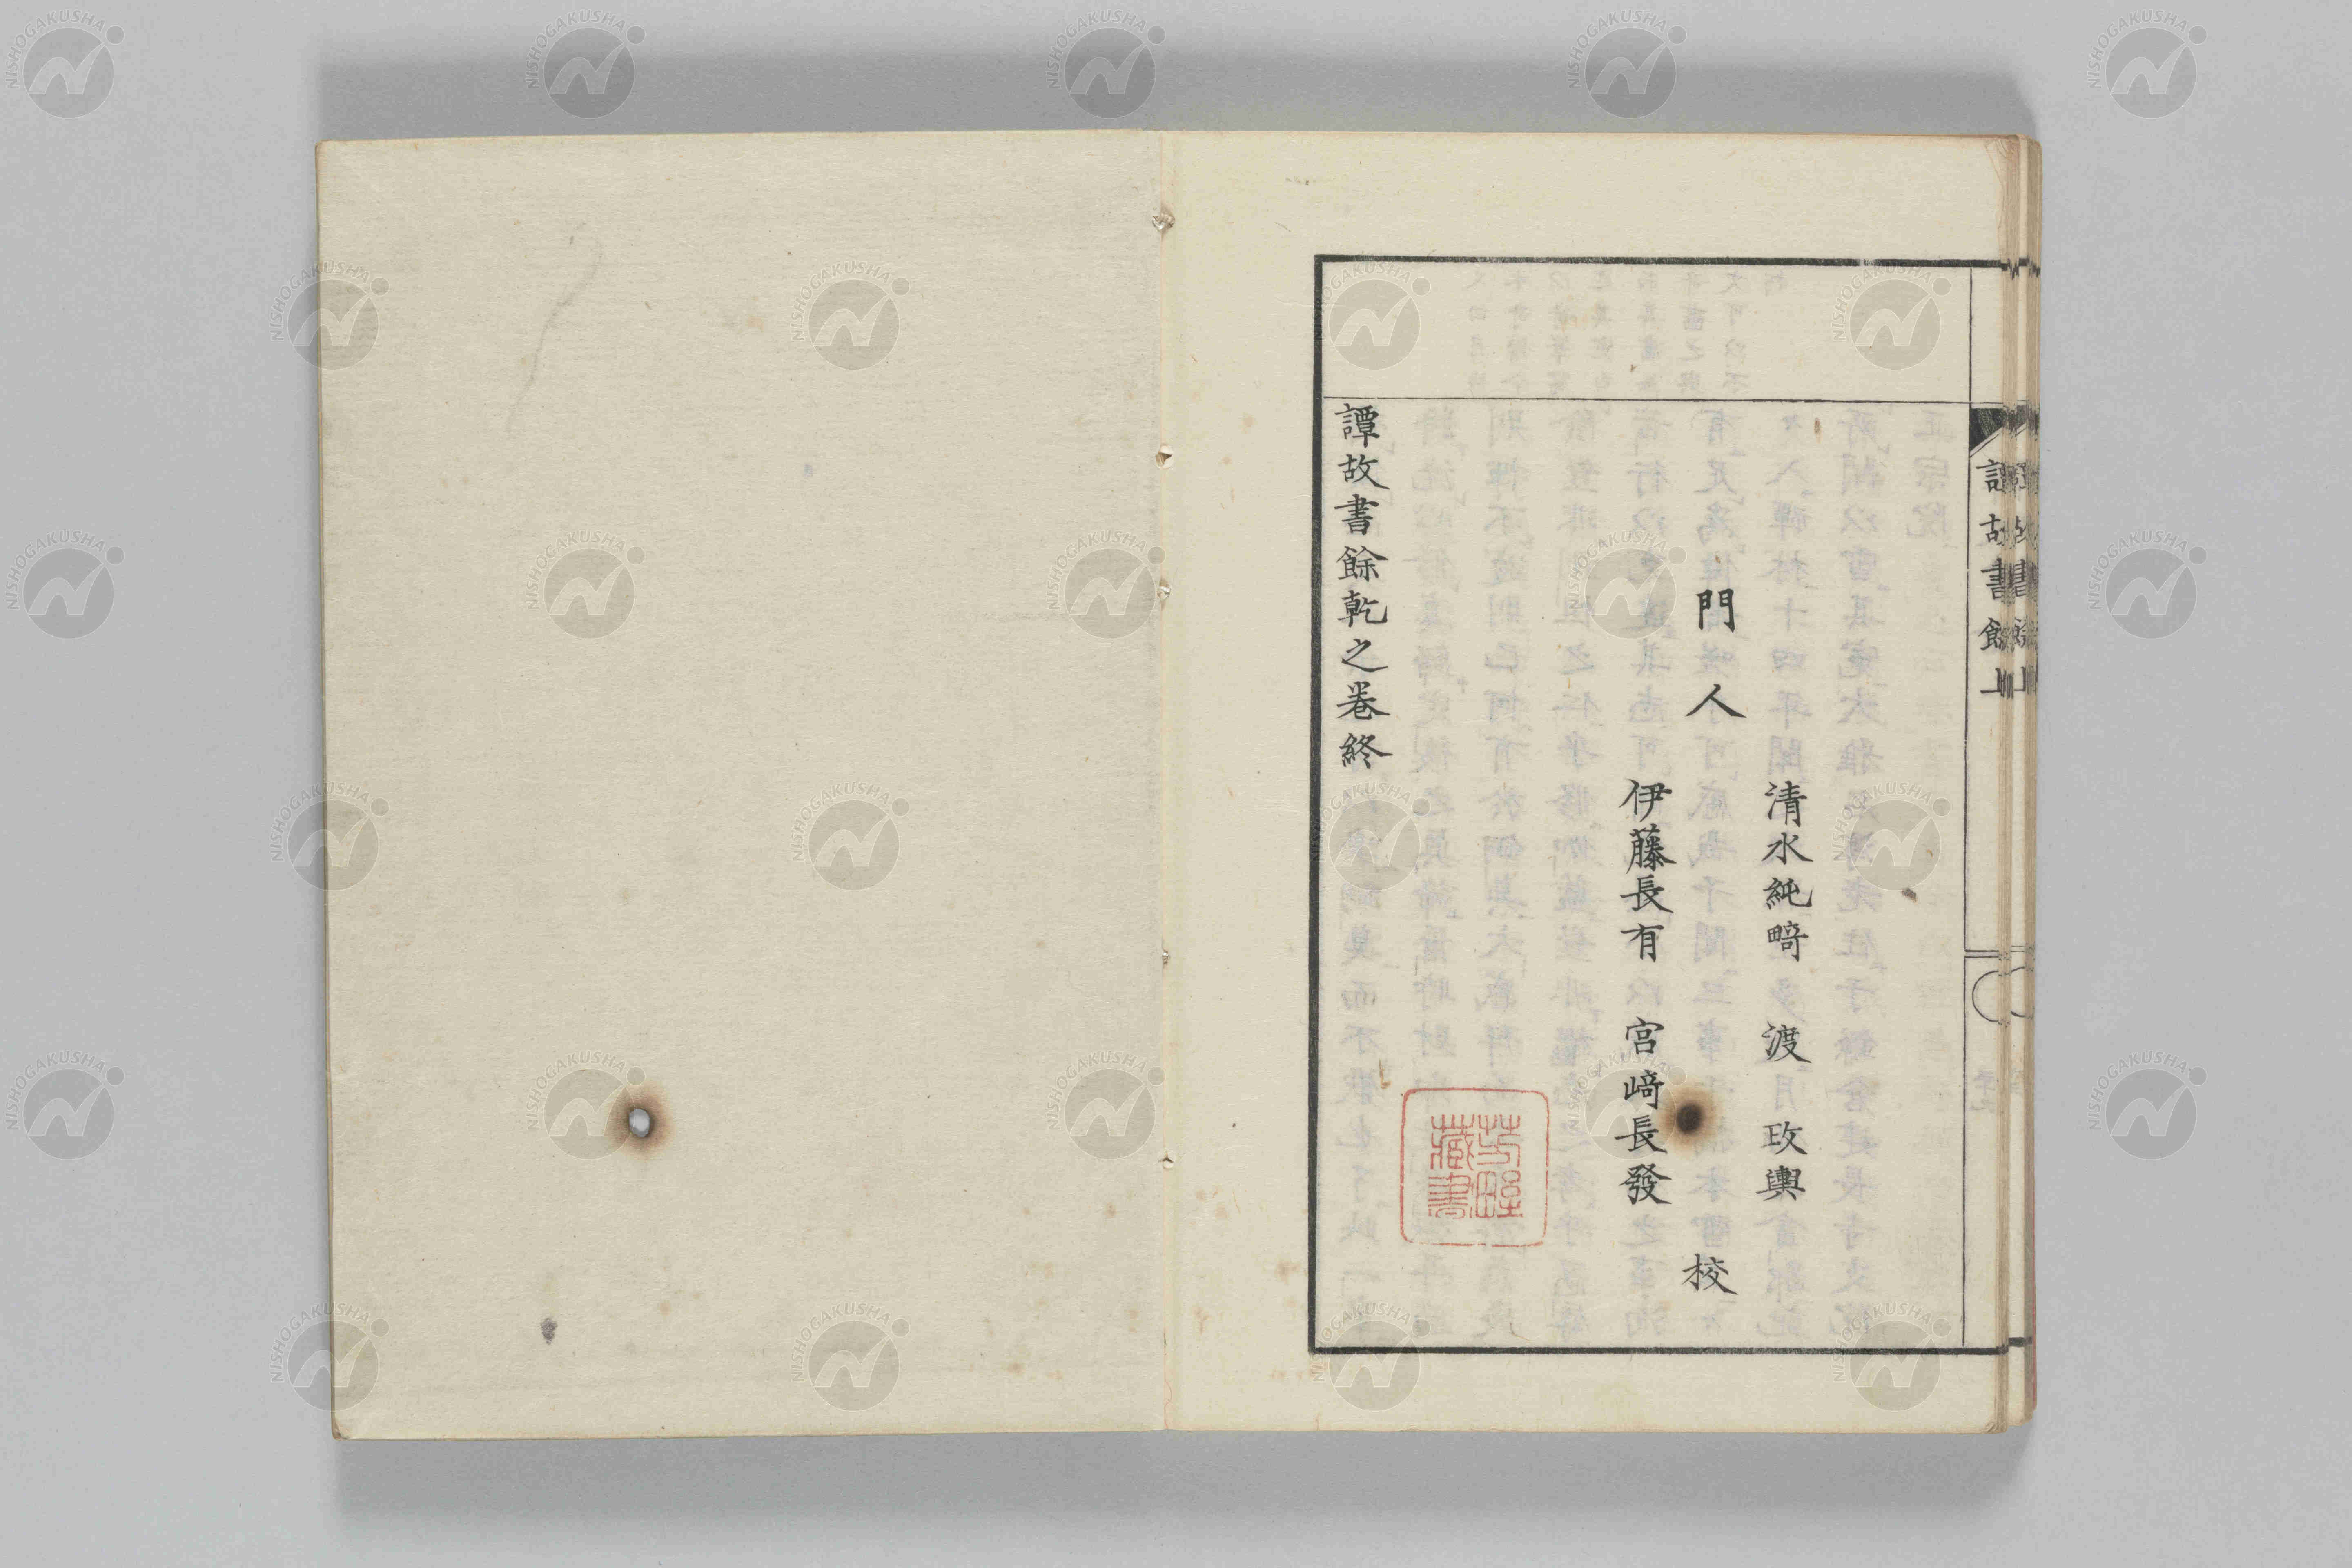 譚故書餘上
清水純畸　渡　玫輿
門人　校
伊藤長有　宮﨑長發
譚故書餘乾之巻終
芳野
藏書
NISHOGAKUSHA